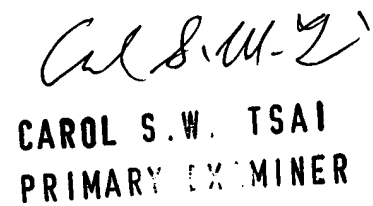 CAROL S.W. TSAI
PRIMARY EXAMINER